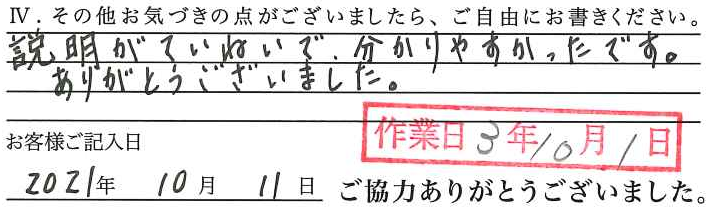 Ⅳ．その他お気づきの点がございましたら、ご自由にお書きください。
説明がていねいで、分かりやすかったです。
ありがとうございました。
作業日 3年10月1日
お客様ご記入日
2021年 10月 11日 ご協力ありがとうございました。